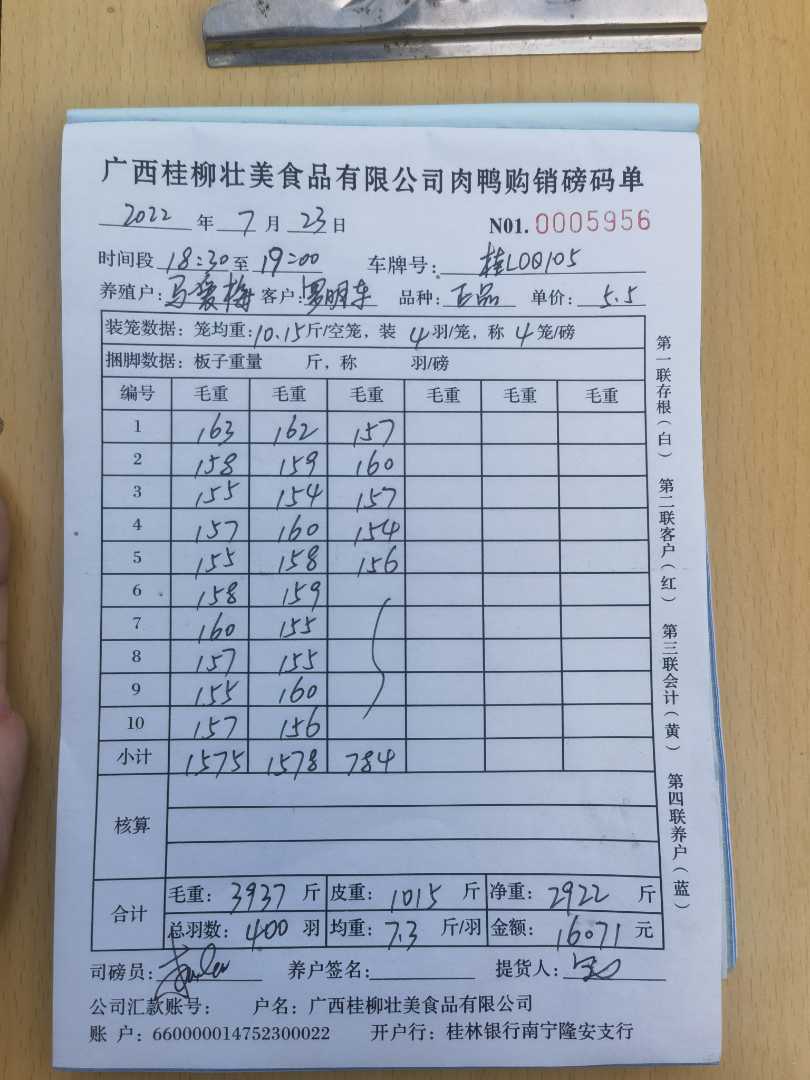 广西桂柳壮美食品有限公司肉鸭购销磅码单
2022 年 7 月 23 日 N01. 0005956
时间段 18:30 至 19:00 车牌号: 桂L0Q105
养殖户: 马爱梅 客户: 罗明东 品种: 正品 单价: 5.5
装笼数据: 笼均重: 10.15 斤/空笼, 装 4 羽/笼, 称 4 笼/磅
捆脚数据: 板子重量 斤, 称 羽/磅
编号 毛重 毛重 毛重 毛重 毛重 毛重
1 163 162 157
2 158 159 160
3 155 154 157
4 157 160 154
5 155 158 156
6 158 159
7 160 155
8 157 155
9 155 160
10 157 156
小计 1575 1578 784
核算
合计 毛重: 3937 斤 皮重: 1015 斤 净重: 2922 斤
总羽数: 400 羽 均重: 7.3 斤/羽 金额: 16071 元
司磅员: 养户签名: 提货人:
公司汇款账号: 户名: 广西桂柳壮美食品有限公司
账 户: 660000014752300022 开户行: 桂林银行南宁隆安支行
第一联存根(白) 第二联客户(红) 第三联会计(黄) 第四联养户(蓝)